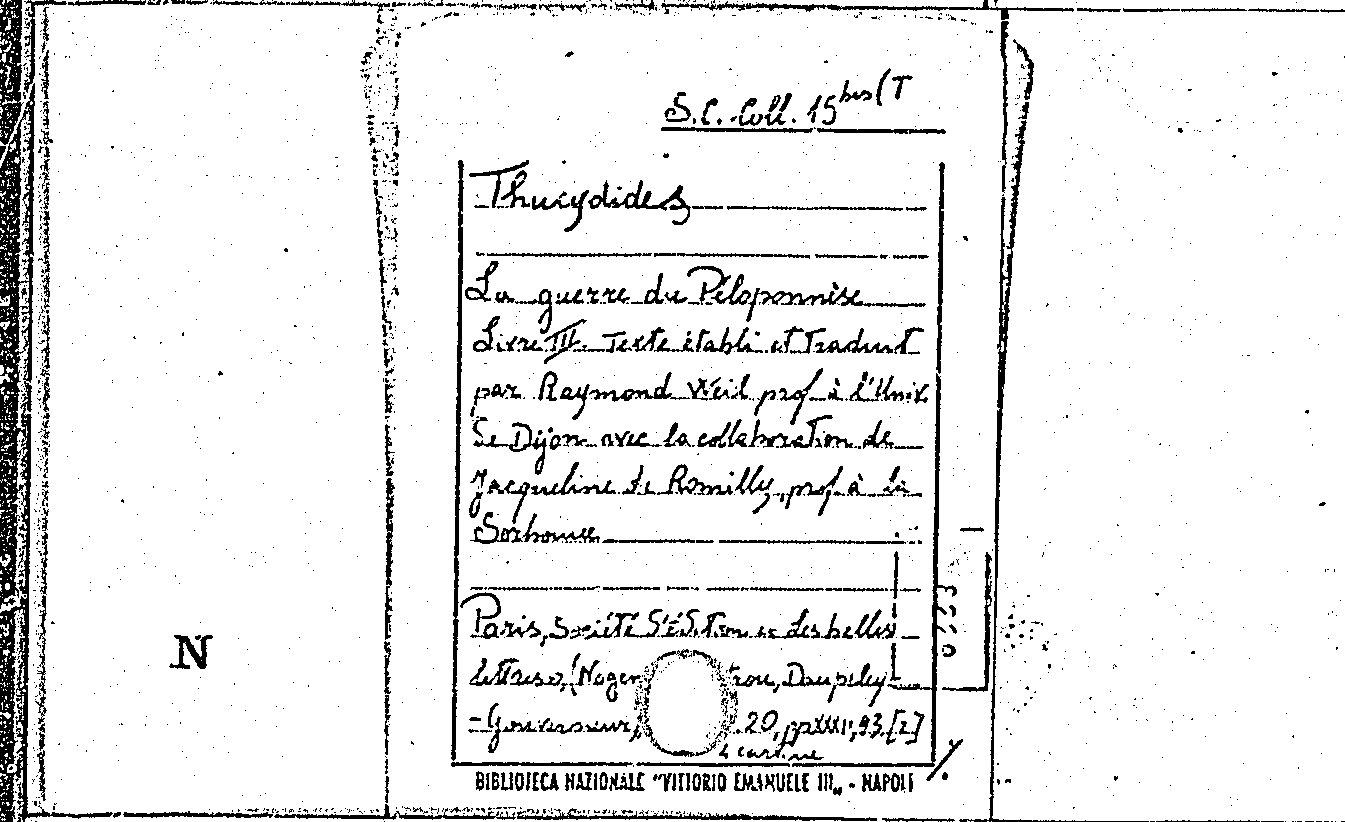 S.C. Coll. 15 bis (T
Thucydides
La guerre du Péloponnèse
Livre III. Texte établi et traduit
par Raymond Weil prof. à l'Univ.
de Dijon avec la collaboration de
Jacqueline de Romilly, prof. à la
Sorbonne
Paris, Société d'édition " les belles
lettres", (Nogen trou, Daupeley-
-Gouverneur, 20, pp. XXXI, 93, [2]
4 cartine
N
BIBLIOTECA NAZIONALE "VITTORIO EMANUELE III„ - NAPOLI